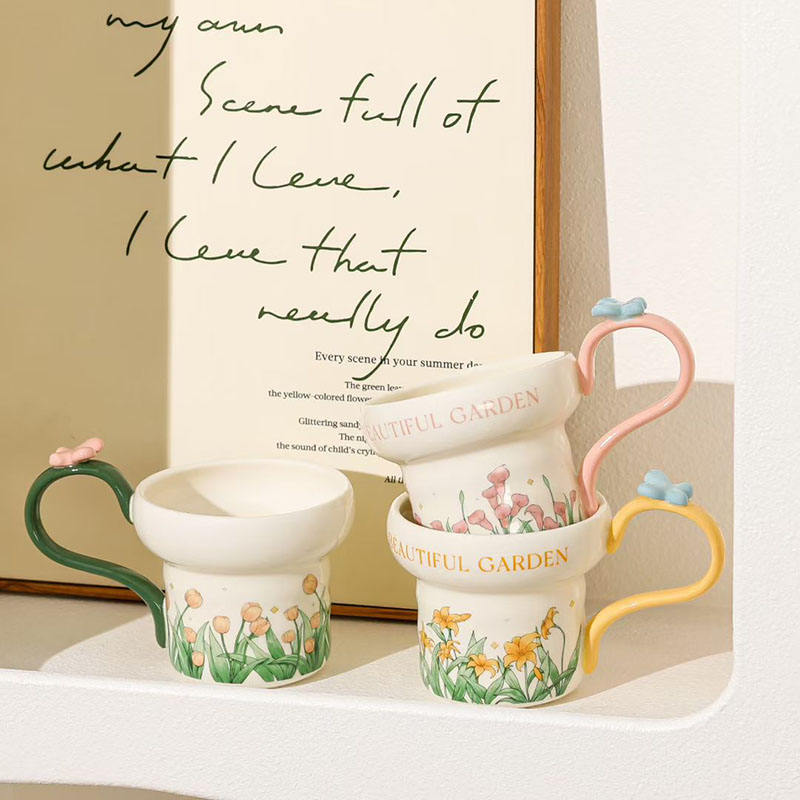 my own
Scene full of
what I leve,
I leve that
really do
Every scene in your summer
The green
the yellow-colored
Glittering sandy
The
the sound of child's
All
BEAUTIFUL GARDEN
BEAUTIFUL GARDEN